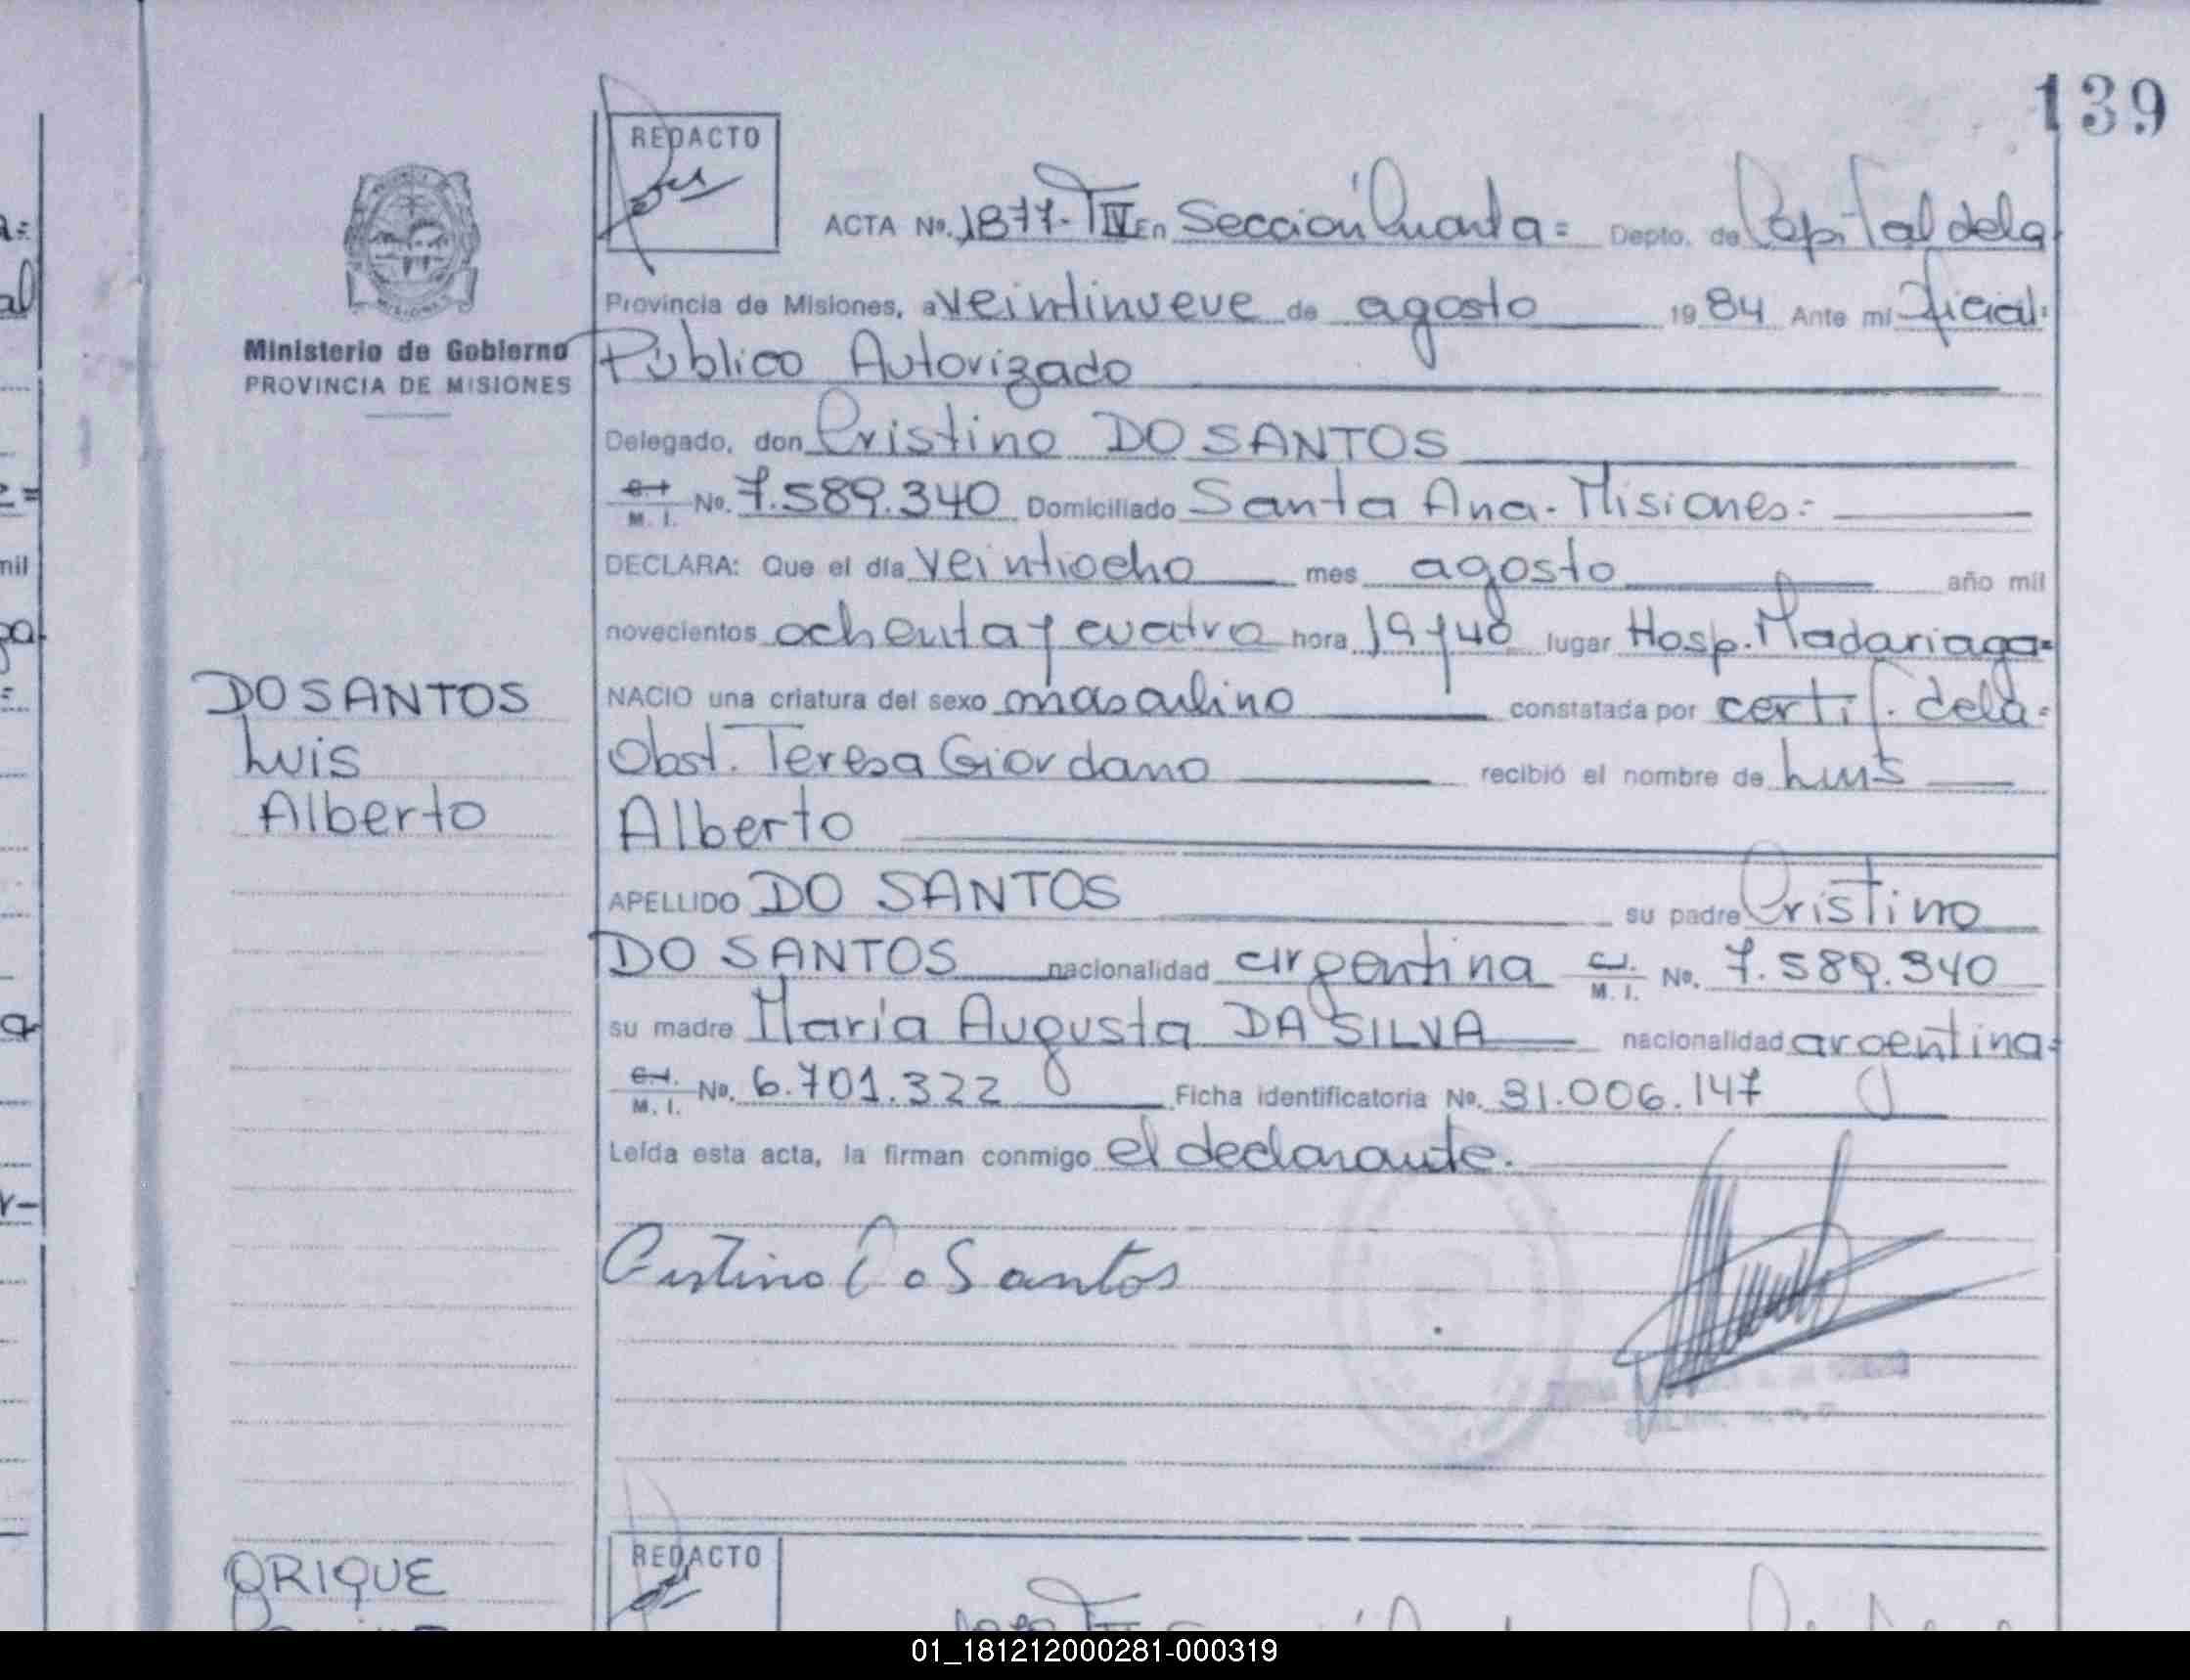 139
REDACTO
ACTA No. 1877-TIV En Sección Cuarta= Depto. de Capital dela
Provincia de Misiones, a veintinueve de agosto 1984 Ante mi Oficial=
Ministerio de Gobierno
PROVINCIA DE MISIONES
Público Autorizado
Delegado, don Cristino DO SANTOS
C.I. M. I. No. 7.589.340 Domiciliado Santa Ana-Misiones=
DECLARA: Que el día veintiocho mes agosto año mil
novecientos ochenta y cuatro hora 19y40 lugar Hosp. Madariaga=
NACIO una criatura del sexo masculino constatada por certif. dela=
Obst. Teresa Giordano recibió el nombre de Luis
Alberto
DO SANTOS
Luis
Alberto
APELLIDO DO SANTOS su padre Cristino
DO SANTOS nacionalidad argentina C.I. M. I. No. 7.589.340
su madre María Augusta DA SILVA nacionalidad argentina=
C.I. M. I. No. 6.701.322 Ficha identificatoria No. 31.006.147
Leída esta acta, la firman conmigo el declarante.
Cristino Do Santos
REDACTO
ORIQUE
01_181212000281-000319